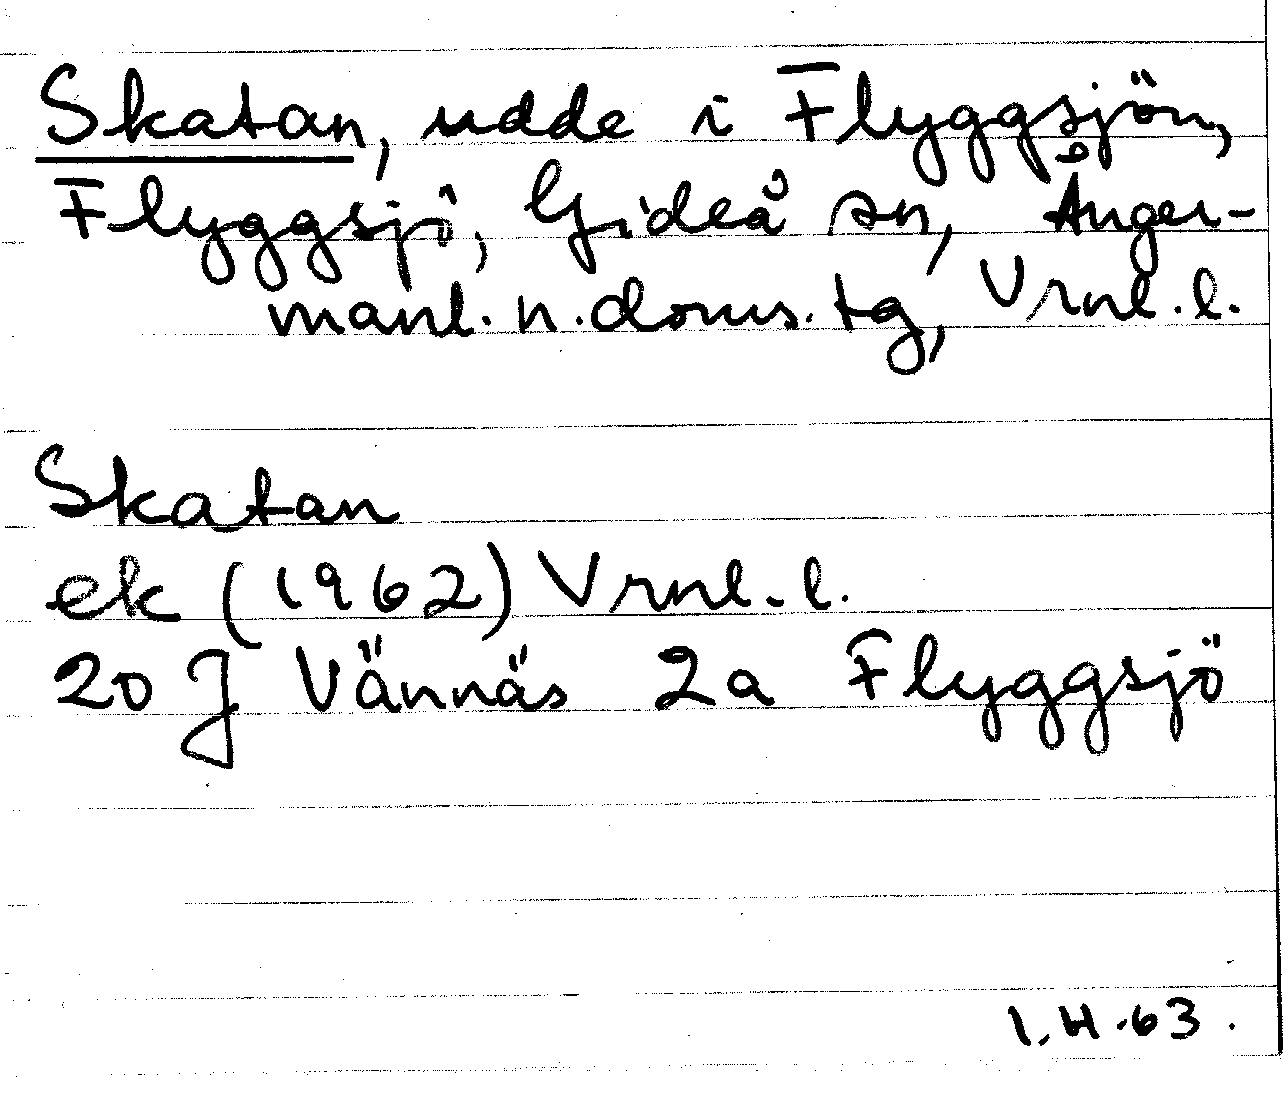 Skatan, udde i Flyggsjön,
Flyggsjö, Gideå sn, Ånger-
manl. n. doms. tg, Vrnl. l.
Skatan
ek (1962) Vrnl. l.
20 J Vännäs 2a Flyggsjö
I.H.63.